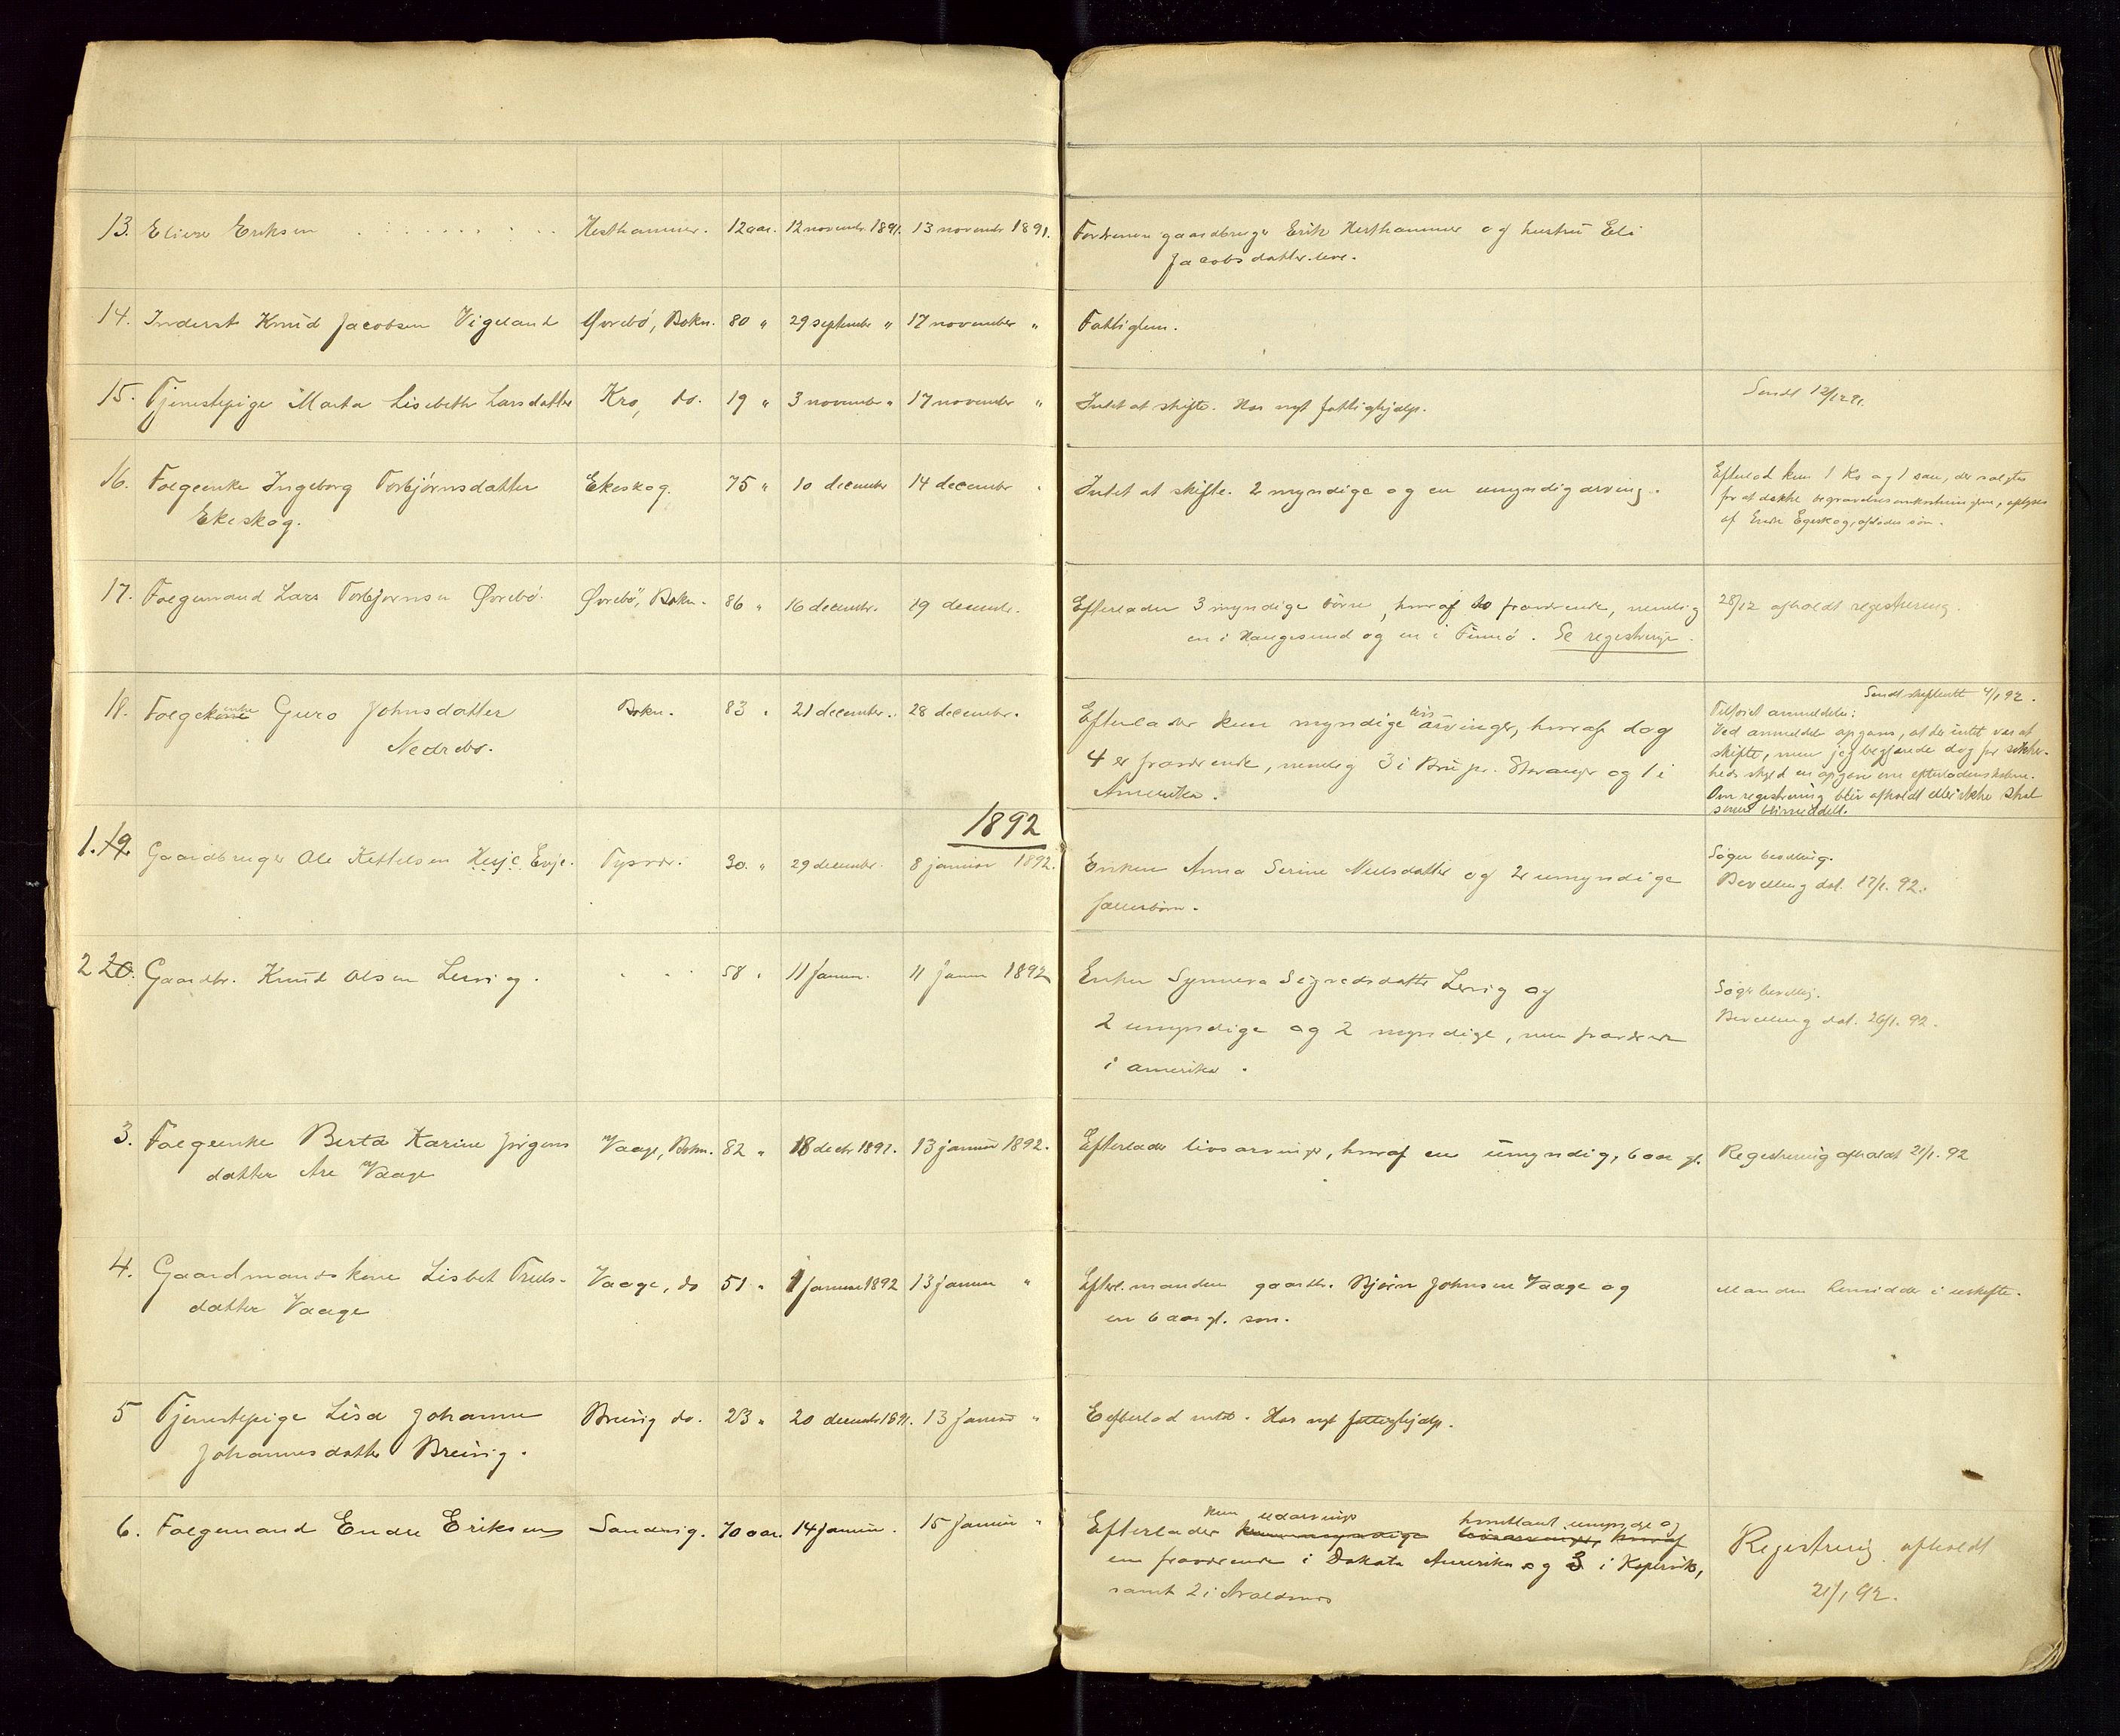 13. Eliese Eriksen . . . . . . . . . Hesthammer. 12 aar. 12 novembr. 1891. 13 novembr 1891. Forældrene gaardbruger Erik Hesthammer og hustru Eli
Jacobsdatter lever.
14. Inderst Knud Jacobsen Vigeland Øvrebö, Bokn. 80 " 29 september " 17 november " Fattiglem.
15. Tjenestepige Marta Lisebeth Larsdatter Kro, do. 19 " 3 november " 17 november " Intet at skifte. Har nydt fattighjælp. Sendt 12/12 91.
16. Folgeenke Ingeborg Torbjörnsdatter Ekeskog. 75 " 10 december 14 december " Intet at skifte. 2 myndige og en umyndig arving. Efterlod kun 1 ko og 1 sau, der solgtes
Ekeskog. for at dække begravelsesomkostningerne, oplyses
af Endre Egeskog, afdødes søn.
17. Folgemand Lars Torbjørnsen Øvrebö. Øvrebö, Bokn. 86 " 16 decembr. 19 decembr. Efterlader 3 myndige börn, hvoraf to fraværende, nemlig 28/12 afholdt registrering.
en i Haugesund og en i Finnö. Se registrering.
18. Folgekone enke Guro Johnsdatter Bokn. 83 " 21 december. 28 december. Efterlader kun myndige livsarvinger, hvoraf dog Sendt skifteret 4/1 92.
Nedrebø. 4 er fraværende, nemlig 3 i Bru pr. Stavanger og 1 i Tilföiet anmeldelse:
Amerika. Ved anmeldelse opgaves, at der intet var at
skifte, men jeg begjærede dog for sikker-
heds skyld en opgave om efterladenskaberne.
Om registrering blir afholdt eller ikke skal
senere bli meddelt.
1892
1. 19. Gaardbruger Ole Kettelsen Hesje Evje. Tysvær. 30. " 29 december. 8 januar 1892. Enken Anna Serine Nielsdatter og 2 umyndige Søger bevilling.
fællesbørn. Bevilling dat. 17/1. 92.
2 20. Gaardbr. Knud Olsen Lervig. " " " 58 " 11 januar. 11 januar 1892 Enken Synneva Sigvedsdatter Lervig og Søger bevilling.
2 umyndige og 2 myndige, men fraværende Bevilling dat. 26/1. 92.
i amerika.
3. Folgeenke Berta Karine Jörgens Vaage, Bokn. 82 " 18 decbr 1891. 13 januar 1892. Efterlader livsarvinger, hvoraf en umyndig, 6 aar gl. Registrering afholdt 21/1. 92
datter Are Vaage
4. Gaardmandskone Lisbet Truls- Vaage, do 51 " 1 januar 1892 13 januar " Efterl. manden gaardbr. Björn Johnsen Vaage og Manden hensidder i uskifte.
datter Vaage en 6 aar gl. søn.
5 Tjenestepige Lisa Johanne Breivig do. 23 " 20 decembr 1891. 13 januar " Efterlod intet. Har nydt fattighjælp.
Johannesdatter Breivig.
6. Folgemand Endre Eriksen Sandvig. 70 aar. 14 januar. 15 januar " Efterlader kun myndige livsarvinger, hvoraf kun udarvinge hvoriblandt umyndige og Registrering afholdt
en fraværende i Dakota Amerika og 3 i Kopervik, 21/1 92.
samt 2 i Avaldsnes